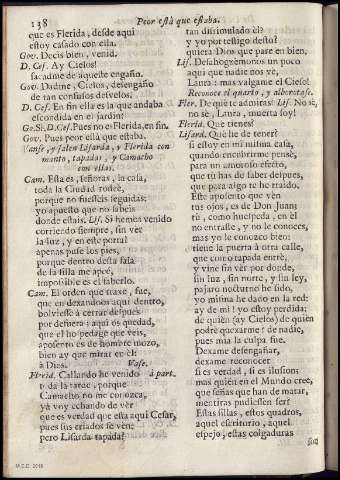 138
Peor está que estaba.
que es Flerida, desde aqui
estoy casado con ella.
Gov. Decis bien, venid.
D. Ces. Ay Cielos!
sacadme de aqueste engaño.
Gov. Dadme, Cielos, desengaño
de tan confusos desvelos.
D. Ces. En fin ella es la que andaba
escondida en el jardin?
Go. Si, D. Ces. Pues no es Flerida, en fin.
Gov. Pues peor está que estaba.
Vanse, y salen Lisarda, y Flerida con
mantos, tapadas, y Camacho
con ellas.
Cam. Esta es, señoras, la casa,
toda la Ciudad rodeè,
porque no fuesseis seguidas:
yo apuesto que no sabeis
donde estais. Lis. Si hemos venido
corriendo siempre, sin ver
la luz, y en este portal
apenas puse los pies,
porque dentro desta sala
de la silla me apeè,
impossible es el saberlo.
Cam. El orden que traxe, fue,
que en dexandoos aqui dentro,
bolviesse à cerrar despues
por defuera: aqui os quedad,
que el hospedage que veis,
aposento es de hombre mozo,
bien ay que mirar en èl:
à Dios. Vase.
Flerid. Callando he venido à part.
de la tarde, porque
Camacho no me conozca,
yà voy echando de ver
que es verdad que esta aqui Cesar,
pues sus criados se vèn:
pero Lisarda tapada?
tan dissimulado èl?
y yo por testigo desto?
quiera Dios que pare en bien.
Lis. Desahoguemonos un poco
aqui que nadie nos vè,
Laura: mas valgame el Cielo!
Reconoce el quarto, y alborotase.
Fler. De què te admiras? Lis. No sè,
no sè, Laura, muerta soy!
Flerid. Què tienes?
Lisard. Què he de tener?
si estoy en mi misma casa,
quando encubrirme pensè,
para un amoroso efecto,
que tù has de saber despues,
que para algo te he traido.
Este aposento que vèn
tus ojos, es de Don Juan;
tù, como huespeda, en èl
no entraste, y no le conoces,
mas yo le conozco bien:
tiene la puerta à otra calle,
que con otapada entrè,
y vine sin vèr por donde,
sin luz, sin norte, y sin ley,
pajaro nocturno he sido,
yo misma he dado en la red:
ay de mi! yo estoy perdida:
de quièn (ay Cielos) de quièn
podrè quexarme? de nadie,
pues mia la culpa fue.
Dexame desengañar,
dexame reconocer
si es verdad, si es ilusion;
mas quièn en el Mundo cree,
que señas que han de matar,
mentiras pudiessen ser?
Estas sillas, estos quadros,
aquel escritorio, aquel
espejo, estas colgaduras
M.C.D. 2018